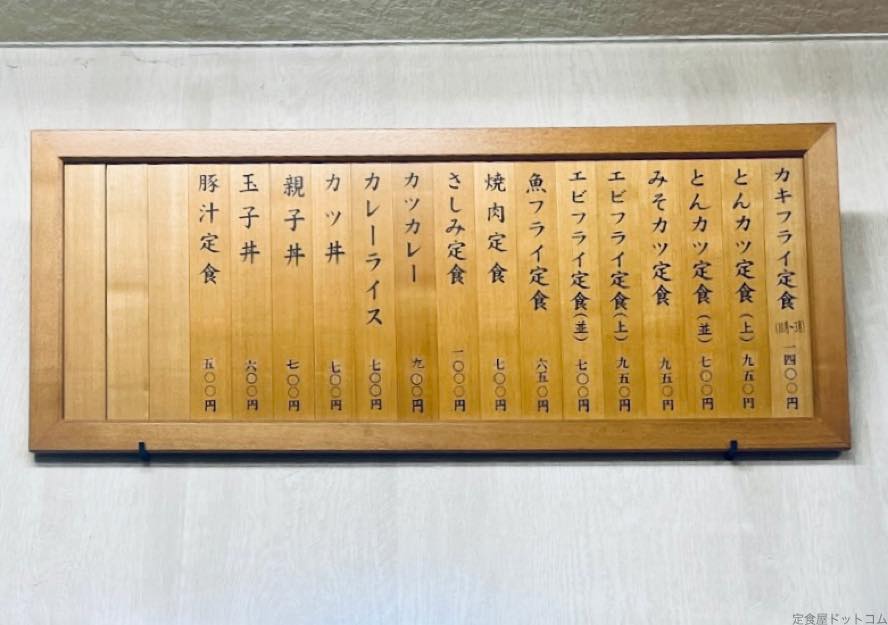 カキフライ定食(10月～3月) 一四〇〇円
とんカツ定食(上) 九五〇円
とんカツ定食(並) 七〇〇円
みそカツ定食 九五〇円
エビフライ定食(上) 九五〇円
エビフライ定食(並) 七〇〇円
魚フライ定食 六五〇円
焼肉定食 七〇〇円
さしみ定食 一〇〇〇円
カツカレー 九〇〇円
カレーライス 七〇〇円
カツ丼 七〇〇円
親子丼 七〇〇円
玉子丼 六〇〇円
豚汁定食 五〇〇円
定食屋ドットコム